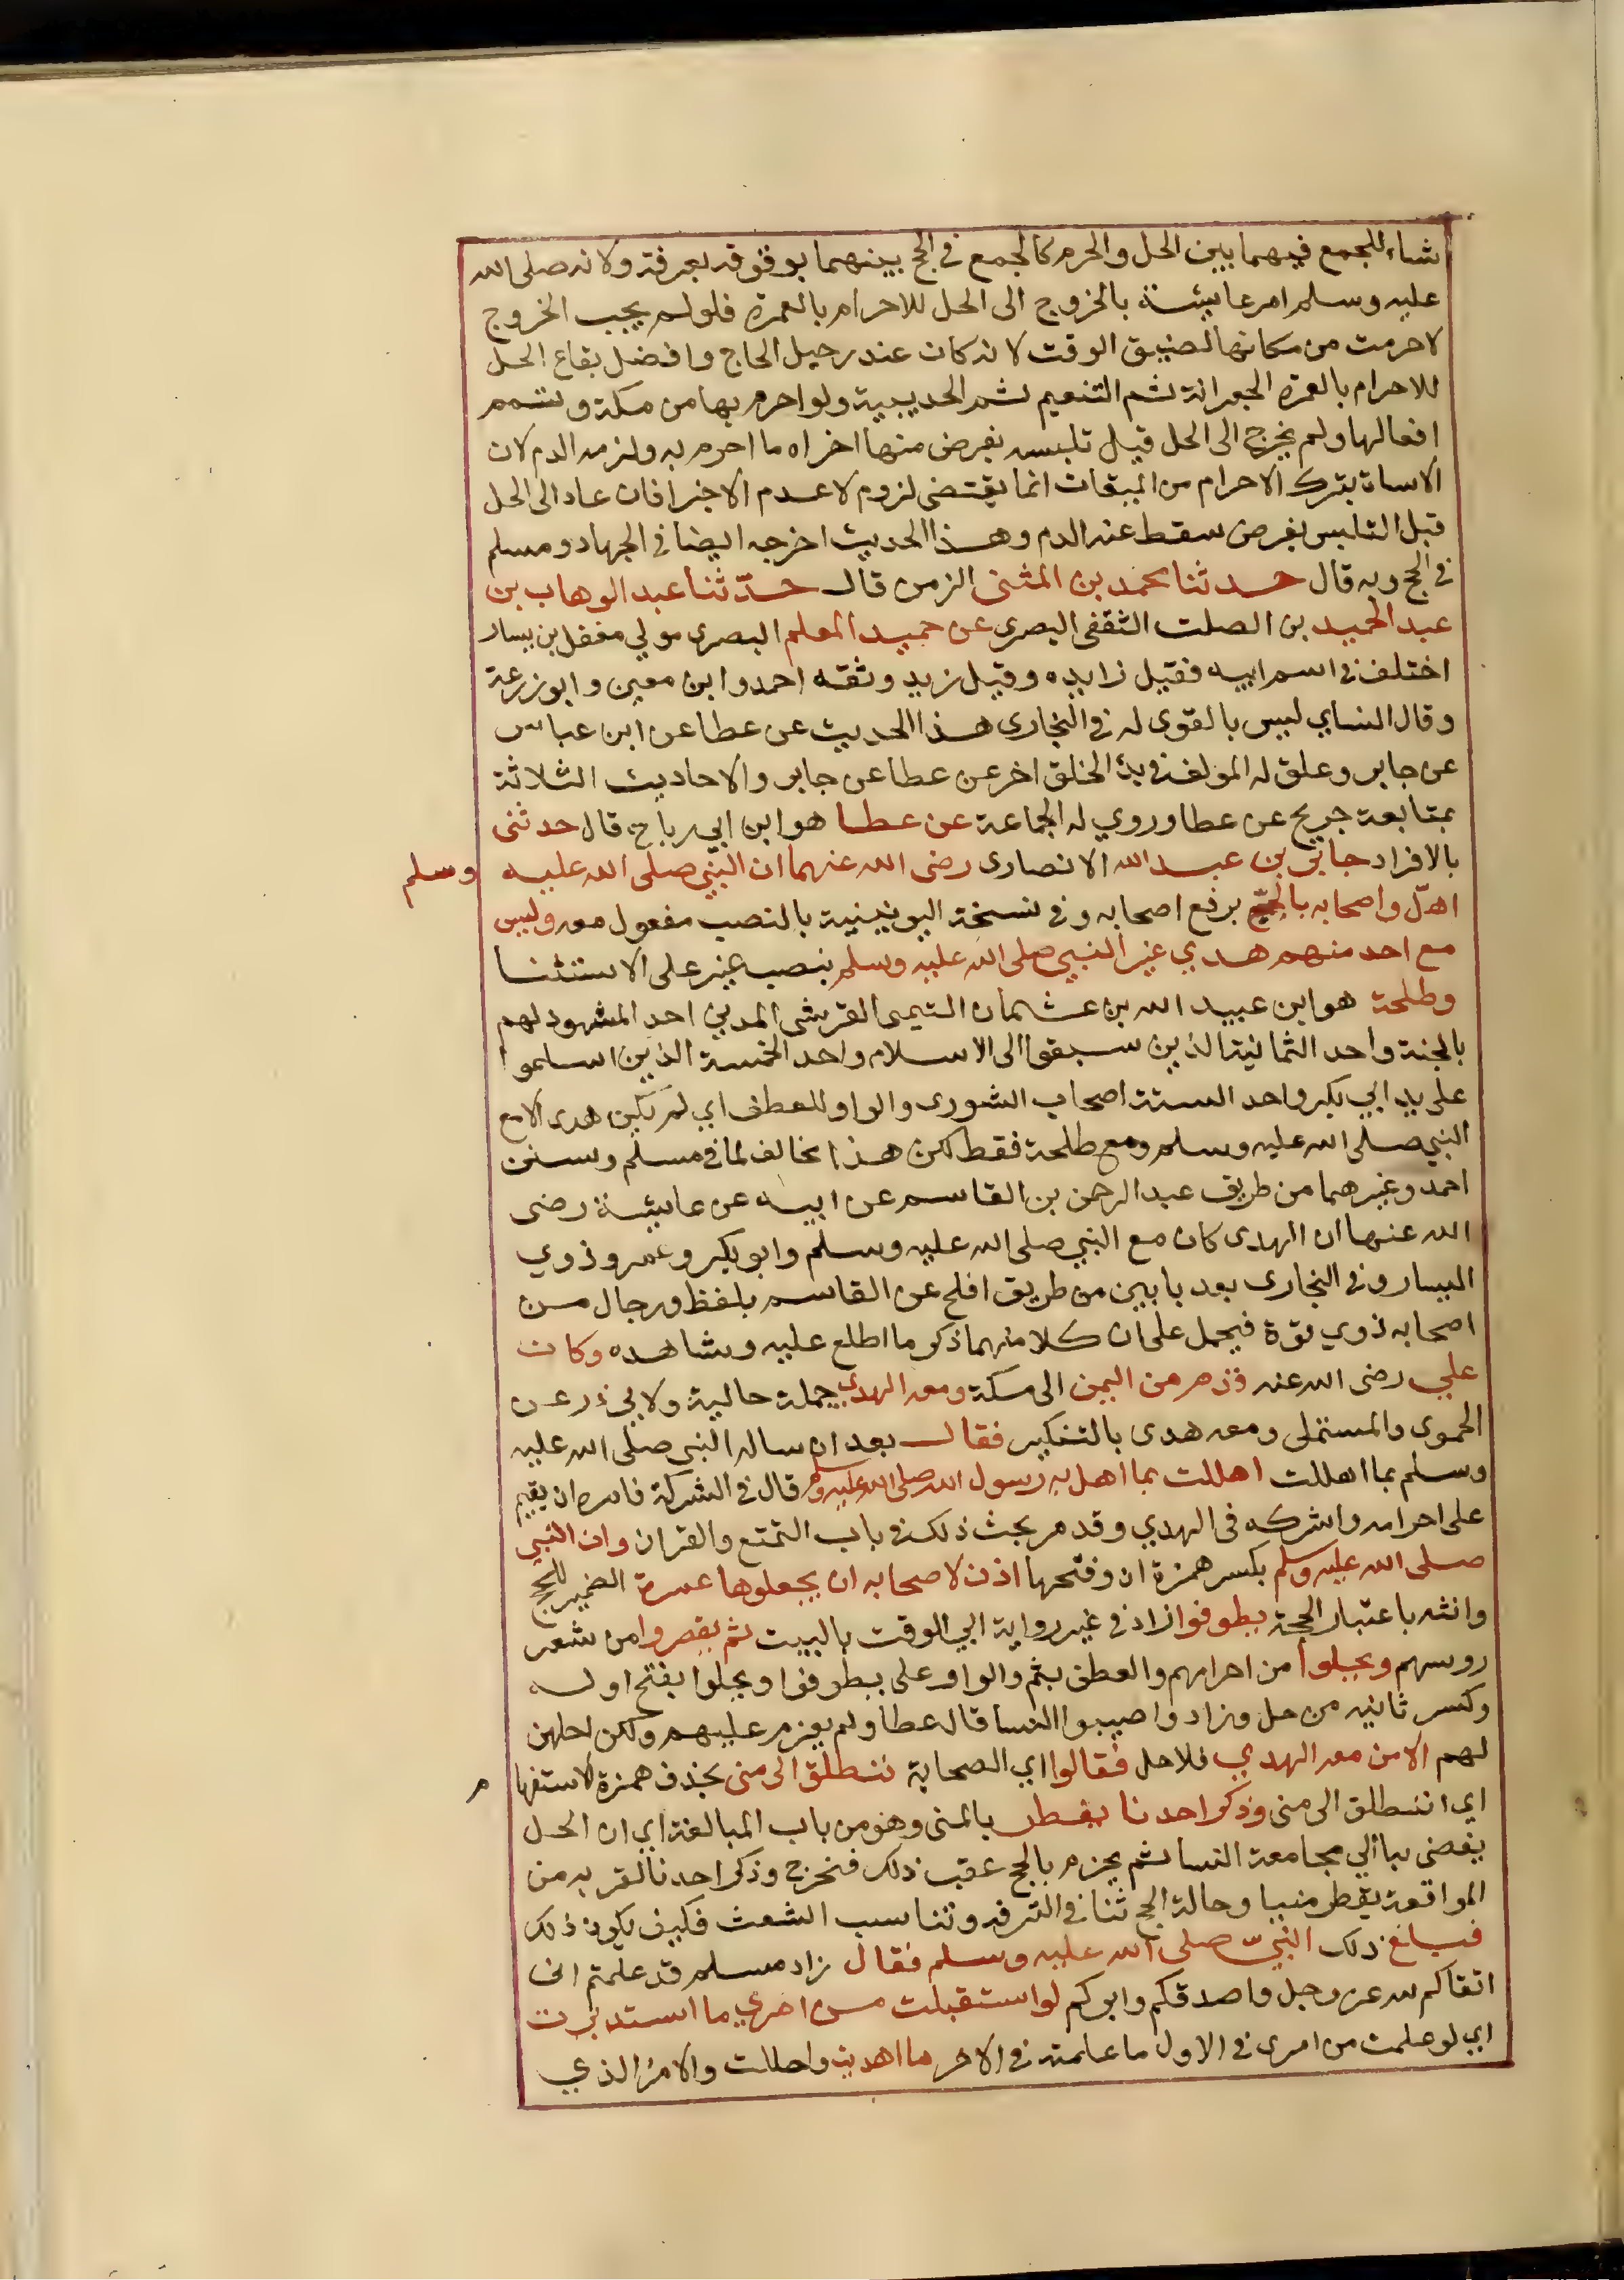 شاء للجمع فيهما بين الحل والحرم كالجمع في الحج بينهما بوقوفه بعرفة ولانه صلى الله
عليه وسلم امر عايشة بالخروج الى الحل للاحرام بالعمرة فلو لم يجب الخروج
لاحرمت من مكانها لضيق الوقت لانه كان عند رحيل الحاج وافضل بقاع الحل
للاحرام بالعمرة الجعرانة ثم التنعيم ثم الحديبية ولو احرم بها من مكة وتمم
افعالها ولم يخرج الى الحل قبل تلبسه بفرض منها اجزاه ما احرم به ولزمه الدم لان
الاساة بترك الاحرام من الميقات انما يقتضى لزوم لا عدم الاجزا فان عاد الى الحل
قبل التلبس بفرض سقط عنه الدم وهذا الحديث اخرجه ايضا في الجهاد ومسلم
في الحج وبه قال حدثنا محمد بن المثنى الزمن قال حدّثنا عبد الوهاب بن
عبد الحميد بن الصلت الثقفى البصرى عن حميد المعلم البصرى مولي معقل بن يسار
اختلف في اسم ابيه فقيل زايده وقيل زيد وثقه احمد وابن معين وابو زرعة
وقال النساي ليس بالقوى له في البخارى هذا الحديث عن عطا عن ابن عباس
عن جابر وعلق له المولف في بدء الخلق اخر عن عطا عن جابر والاحاديث الثلاثة
بمتابعة جريج عن عطا وروي له الجماعة عن عطا هو ابن ابي رباح قال حدثنى
بالافراد جابر بن عبد الله الانصارى رضى الله عنهما ان النبي صلى الله عليه وسلم
اهلّ واصحابه بالحج برفع اصحابه وفي نسخة اليونينية بالنصب مفعول معه وليس
مع احد منهم هدي غير النبي صلى الله عليه وسلم بنصب غير على الاستثنا
وطلحة هو ابن عبيد الله بن عثمان التيمى القرشى المدني احد المشهود لهم
بالجنة واحد الثمانية الذين سبقوا الى الاسلام واحد الخمسة الذين اسلموا
على يد ابي بكر واحد الستة اصحاب الشورى والواو للعطف اي لم يكن هدى الا مع
النبي صلى الله عليه وسلم ومع طلحة فقط لكن هذا مخالف لما في مسلم وسنن
احمد وغيرهما من طريق عبد الرحمن بن القاسم عن ابيه عن عايشة رضى
الله عنها ان الهدى كان مع النبي صلى الله عليه وسلم وابو بكر وعمر وذوي
اليسار وفي البخارى بعد بابين من طريق افلح عن القاسم بلفظ ورجال من
اصحابه ذوي قوة فيحمل على ان كلا منهما ذكر ما اطلع عليه وشاهده وكان
علي رضى الله عنه قدم من اليمن الى مكة ومعه الهدى جملة حالية ولابي ذر عن
الحموى والمستملى ومعه هدى بالتنكير فقال بعد ان ساله النبي صلى الله عليه
وسلم بما اهللت اهللت بما اهل به رسول الله صلى الله عليه وسلم قال في الشركة فامره ان يقيم
على احرامه واشركه في الهدي وقد مر بحث ذلك في باب التمتع والقران وان النبي
صلى الله عليه وسلم بكسر همزة ان وفتحها اذن لاصحابه ان يجعلوها عمرة الضمير للحج
وانثه باعتبار الحجة يطوفوا زاد في غير رواية ابي الوقت بالبيت ثم يقصروا من شعر
روسهم ويحلوا من احرامهم والعطف بثم والواو على يطوفوا ويحلوا بفتح اوله
وكسر ثانيه من حل وزاد واصيبوا النسا قال عطا ولم يعزم عليهم ولكن احلهن
لهم الا من معه الهدي فلا حل فقالوا اي الصحابة ننطلق الى منى بحذف همزة الاستفهام
اي اننطلق الى منى وذكر احدنا يقطر بالمنى وهو من باب المبالغة اي ان الحل
يفضى بنا الي مجامعة النسا ثم يحرم بالحج عقب ذلك فنخرج وذكر احدنا لقربه من
المواقعة يقطر منيا وحالة الحج تنا في الترفه وتناسب الشعث فكيف يكون ذلك
فبلغ ذلك النبيّ صلى الله عليه وسلم فقال زاد مسلم قد علمتم انى
اتقاكم لله عز وجل واصدقكم وابركم لو استقبلت من امري ما استدبرت
اي لو علمت من امرى في الاول ما علمته في الاخر ما اهديت واحللت والامر الذي